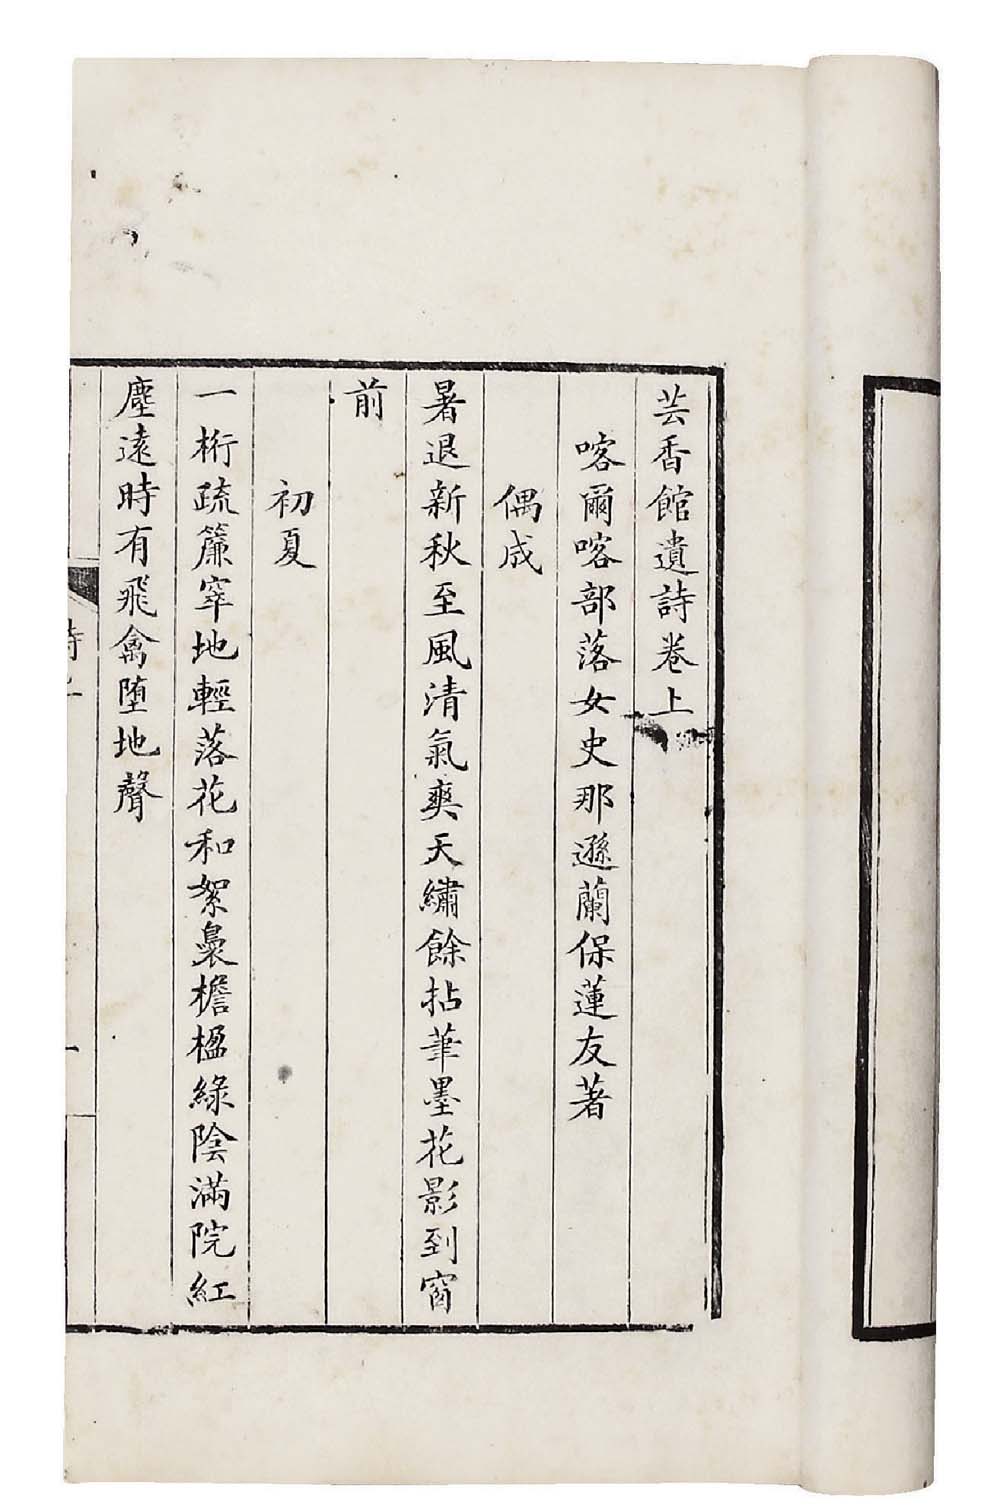 芸香館遺詩卷上
喀爾喀部落女史那遜蘭保蓮友著
偶成
暑退新秋至風清氣爽天繡餘拈筆墨花影到窗
前
初夏
一桁疏簾窣地輕落花和絮裊檐楹綠陰滿院紅
塵遠時有飛禽墮地聲
一